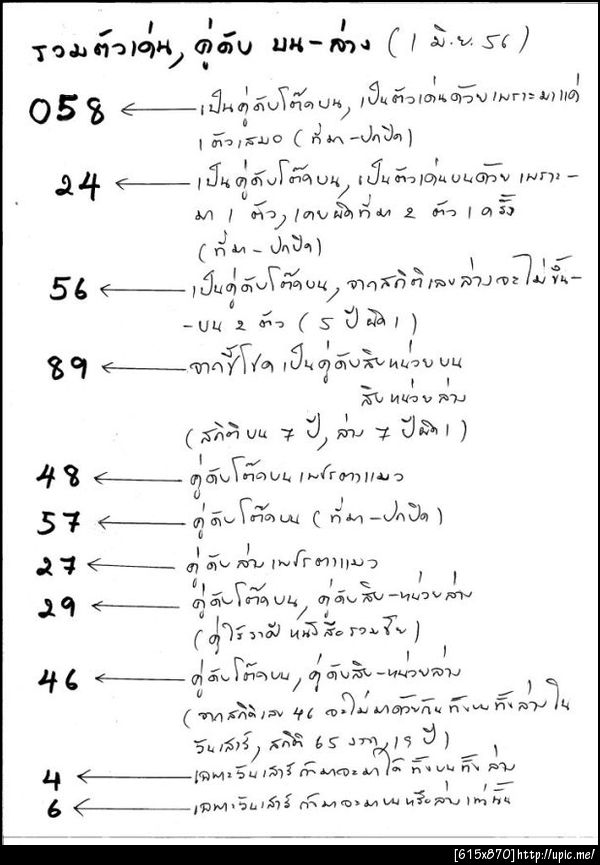 รวมตัวเด่น, คู่ดับ บน-ล่าง (1 มิ.ย. 56)
058 ← เป็นคู่ดับโต๊ดบน, เป็นตัวเด่นด้วยเพราะมาแค่
1 ตัวเสมอ (ที่มา-ปกปิด)
24 ← เป็นคู่ดับโต๊ดบน, เป็นตัวเด่นบนด้วย เพราะ-
มา 1 ตัว, เคยผิดที่มา 2 ตัว 1 ครั้ง
(ที่มา-ปกปิด)
56 ← เป็นคู่ดับโต๊ดบน, จากสถิติเลขล่างจะไม่ขึ้น-
-บน 2 ตัว (5 ปี ผิด 1)
89 ← จากชี้โชค เป็นคู่ดับสิบหน่วยบน
สิบหน่วยล่าง
(สถิติบน 7 ปี, ล่าง 7 ปีผิด 1)
48 ← คู่ดับโต๊ดบน เพชรตาแมว
57 ← คู่ดับโต๊ดบน (ที่มา-ปกปิด)
27 ← คู่ดับล่าง เพชรตาแมว
29 ← คู่ดับโต๊ดบน, คู่ดับสิบ-หน่วยล่าง
(คู่ไร้ราศี หนังสือรวมชัย)
46 ← คู่ดับโต๊ดบน, คู่ดับสิบ-หน่วยล่าง
(จากสถิติเลข 46 จะไม่มาด้วยกัน ทั้งบนทั้งล่าง ใน
วันเสาร์, สถิติ 65 งวด, 19 ปี)
4 ← เฉพาะวันเสาร์ ถ้ามาจะมาได้ ทั้งบนทั้งล่าง
6 ← เฉพาะวันเสาร์ ถ้ามาจะมาบนหรือล่างเท่านั้น
[615x870]http://upic.me/